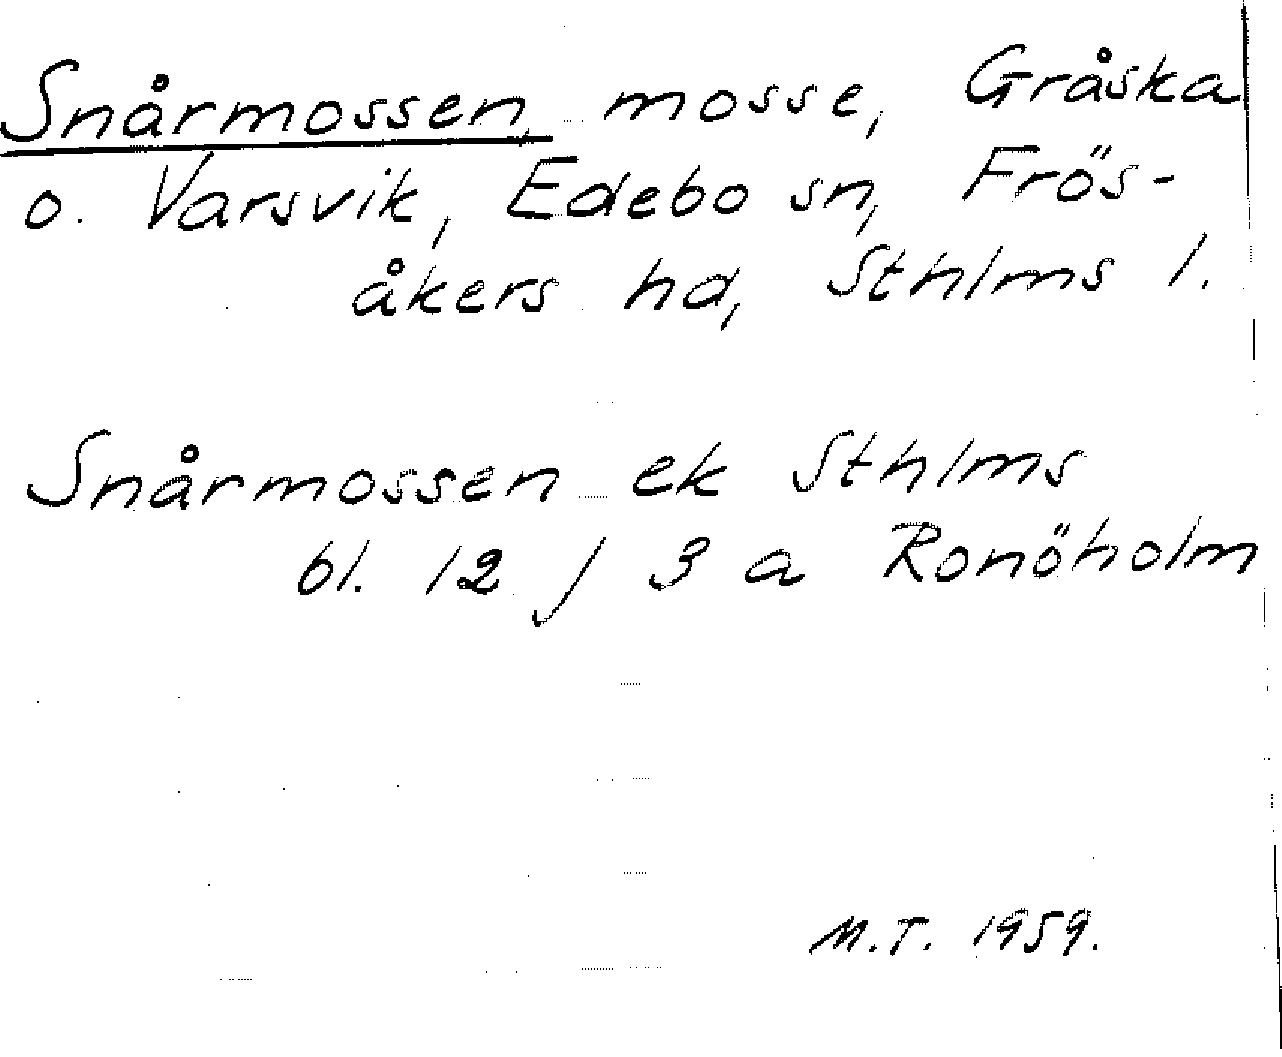 Snårmossen, mosse, Gråska
o. Varsvik, Edebo sn, Frös-
åkers hd, Sthlms l.
Snårmossen ek Sthlms
bl. 12 J 3 a Ronöholm
M.T. 1959.